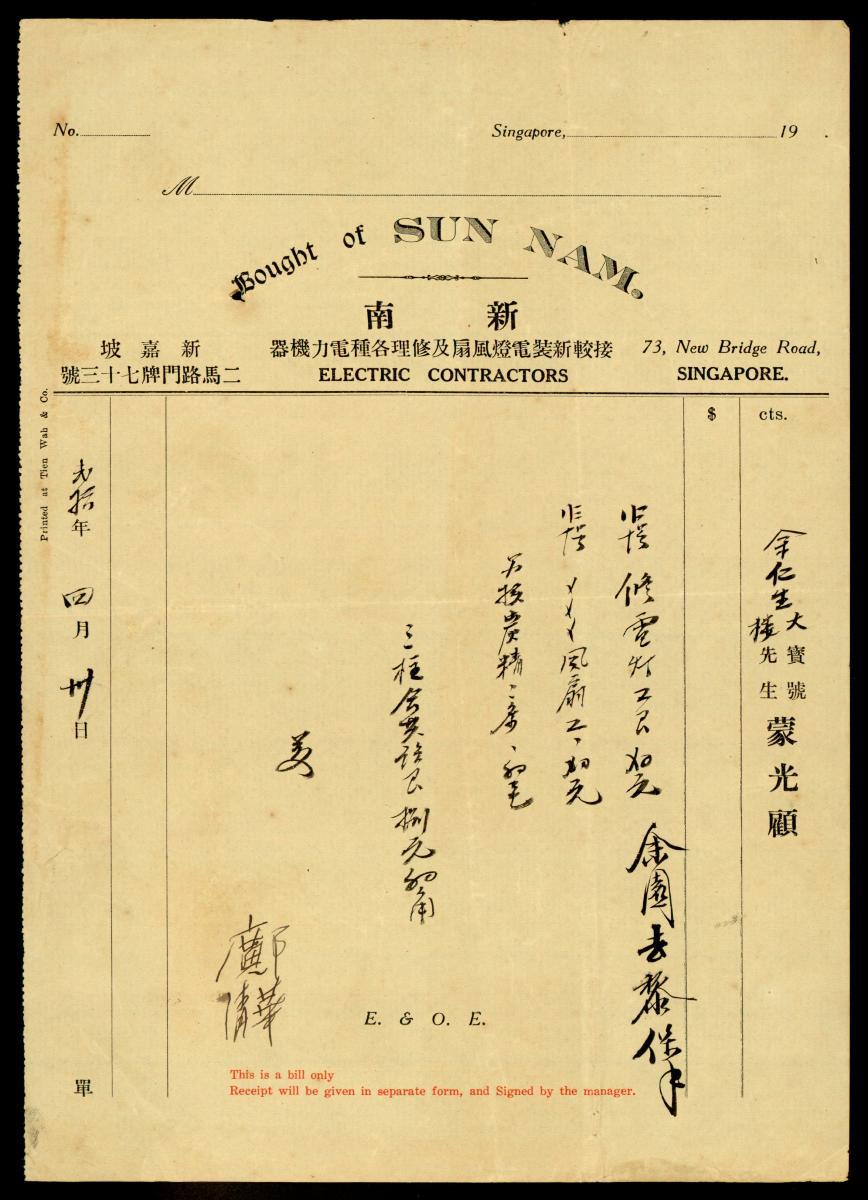 No.
Singapore, 19 .
M
Bought of SUN NAM.
新南
新嘉坡
接較新裝電燈風扇及修理各種電力機器
73, New Bridge Road,
二馬路門牌七十三號
ELECTRIC CONTRACTORS
SINGAPORE.
$ cts.
余仁生大寶號
先生
蒙光顧
修電灯工艮
風扇工
炭精
三柱合共
捌元
余園去
鄺清華
拾年四月卅日
單
E. & O. E.
This is a bill only
Receipt will be given in separate form, and Signed by the manager.
Printed at Tien Wah & Co.